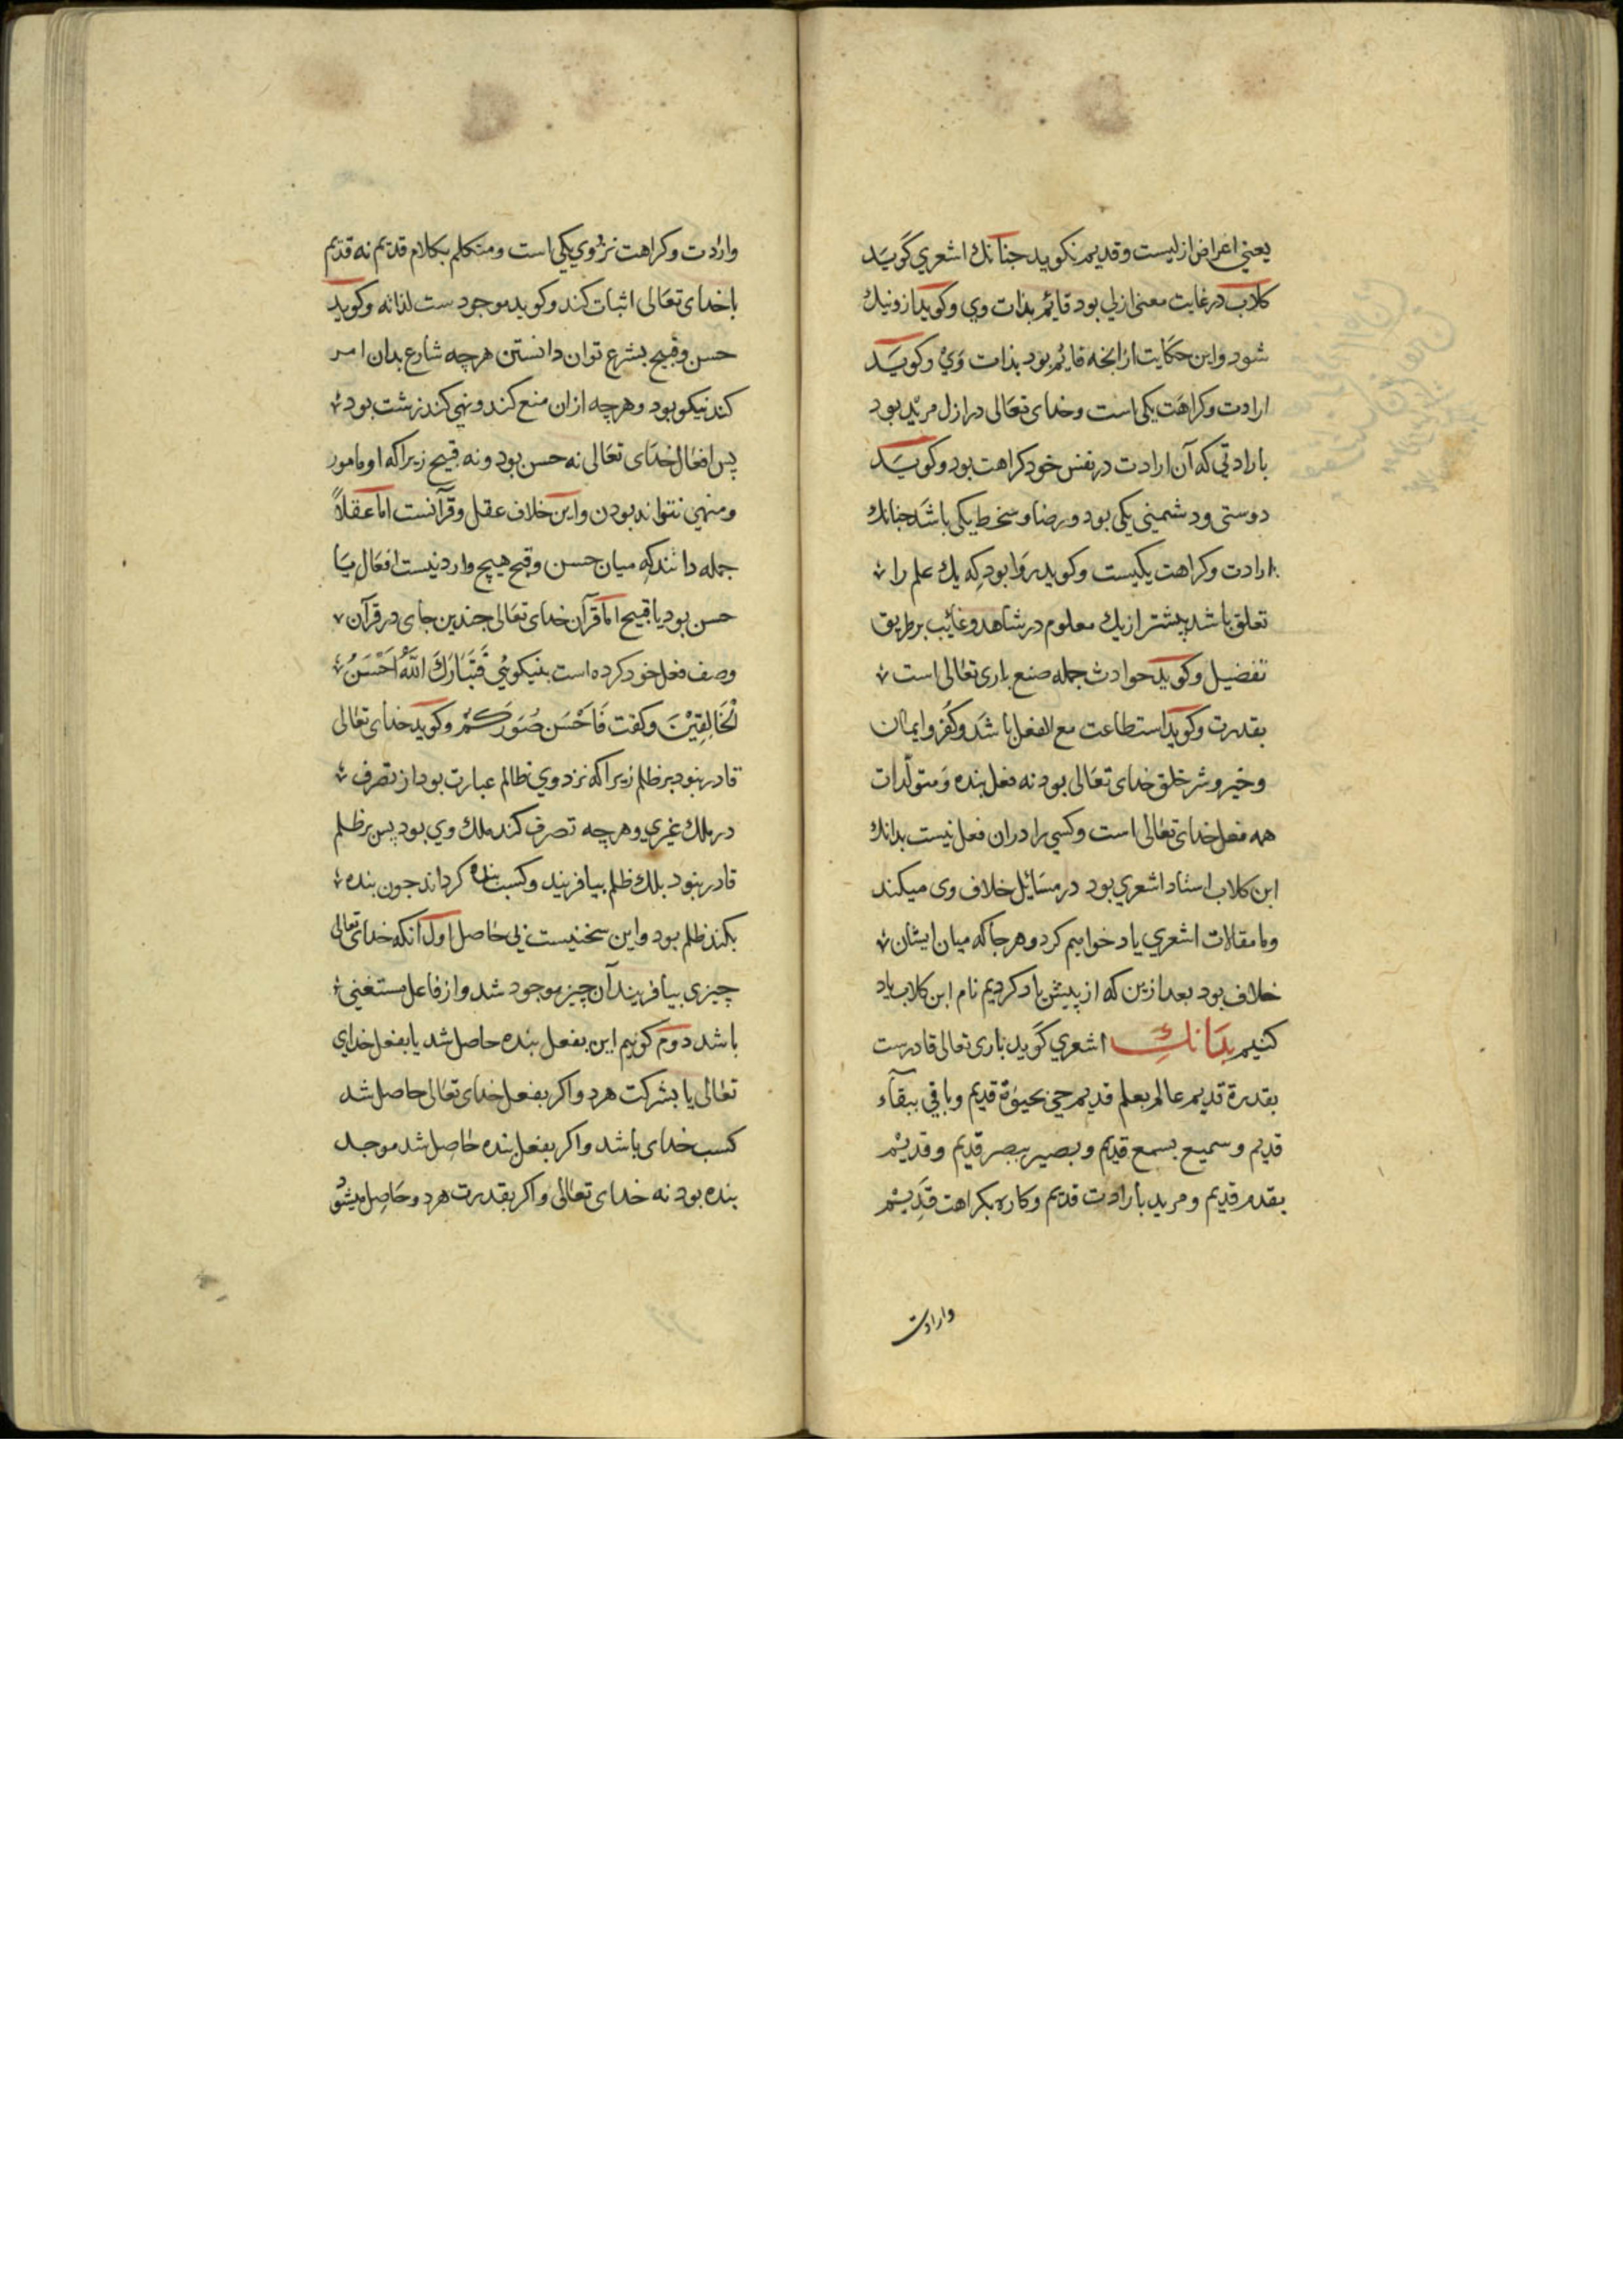 یعنی اعراض ازلیست و قدیم نکوید جنانك اشعری گوید
کلاب در غایت معنی ازلی بود قائم بذات وی و کوید از و نیك
شود و این حکایت از انجه قایم بود بذات وی و کوید
ارادت و کراهت یکی است و خدای تعالی در ازل مرید بود
بارادتی که آن ارادت در نفس خود کراهت بود و کوید
دوستی و دشمنی یکی بود و رضا و سخط یکی باشد جنانك
ارادت و کراهت یکیست و کوید روا بود که یك علم را
تعلق باشد بیشتر از یك معلوم در شاهد و غائب بر طریق
تفضیل و کوید حوادث جمله صنع باری تعالی است
بقدرت و کوید استطاعت مع الفعل باشد و کفر و ایمان
و خیر و شر خلق خدای تعالی بود نه فعل بنده و متولّدات
همه فعل خدای تعالی است و کسی را در ان فعل نیست بدانك
ابن کلاب استاد اشعری بود در مسائل خلاف وی میکند
و ما مقالات اشعری یاد خواهیم کرد و هر جا که میان ایشان
خلاف بود بعد ازین که از پیش یاد کردیم نام ابن کلاب یاد
کنیم بدانك اشعری گوید باری تعالی قادرست
بقدرة قدیم عالم بعلم قدیم حی بحیوة قدیم و باقی ببقآء
قدیم و سمیع بسمع قدیم و بصیر ببصر قدیم و قدیم
بقدم قدیم و مرید بارادت قدیم و کاره بکراهت قدیم
وارادت
وارادت و کراهت نزد وی یکی است و متکلم بکلام قدیم نه قدیم
با خدای تعالی اثبات کند و کوید موجودست لذاته و کوید
حسن و قبیح بشرع توان دانستن هرچه شارع بدان امر
کند نیکو بود و هرچه ازان منع کند و نهی کند زشت بود
پس افعال خدای تعالی نه حسن بود و نه قبیح زیرا که او مامور
و منهی نتواند بودن و این خلاف عقل و قرآنست اما عقلاً
جمله دانند که میان حسن و قبح هیچ وارد نیست افعال یا
حسن بود یا قبیح اما قرآن خدای تعالی جندین جای در قرآن
وصف فعل خود کرده است بنیکوئی فَتَبَارَكَ اللَّهُ اَحْسَنُ
الْخَالِقِیْنَ و کفت فَاَحْسَن صُوَرَكُمْ و کوید خدای تعالی
قادر نبود بر ظلم زیرا که نزد وی ظالم عبارت بود از تصرف
در ملك غیری و هرچه تصرف کند ملك وی بود پس بر ظلم
قادر نبود بلك ظلم بیافریند و کسب بنده کرداند جون بنده
بکند ظلم بود و این سخنیست بی حاصل اول آنکه خدای تعالی
چیزی بیافریند آن چیز موجود شد و از فاعل مستغنی
باشد دوم کوئیم این بفعل بنده حاصل شد یا بفعل خدای
تعالی یا بشرکت هردو اکر بفعل خدای تعالی حاصل شد
کسب خدای باشد و اکر بفعل بنده حاصل شد موجد
بنده بود نه خدای تعالی و اکر بقدرت هردو حاصل میشود